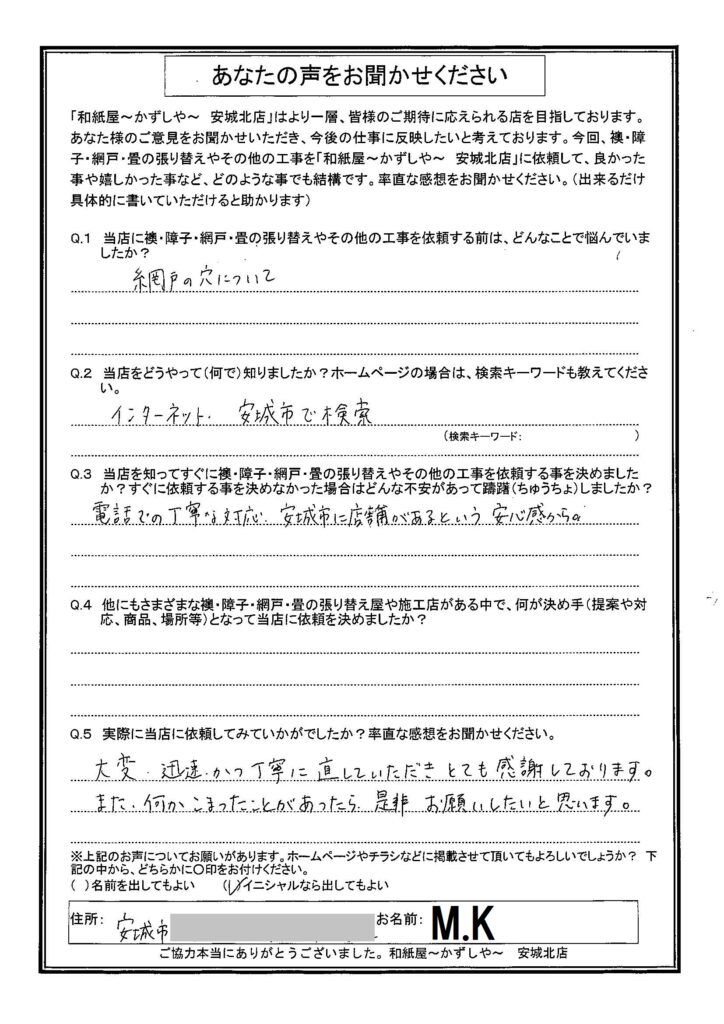 あなたの声をお聞かせください
「和紙屋～かずしや～　安城北店」はより一層、皆様のご期待に応えられる店を目指しております。
あなた様のご意見をお聞かせいただき、今後の仕事に反映したいと考えております。今回、襖・障
子・網戸・畳の張り替えやその他の工事を「和紙屋～かずしや～　安城北店」に依頼して、良かった
事や嬉しかった事など、どのような事でも結構です。率直な感想をお聞かせください。（出来るだけ
具体的に書いていただけると助かります）
Q.1　当店に襖・障子・網戸・畳の張り替えやその他の工事を依頼する前は、どんなことで悩んでいま
したか？
網戸の穴について
Q.2　当店をどうやって（何で）知りましたか？ホームページの場合は、検索キーワードも教えてくださ
い。
インターネット．　安城市で検索
（検索キーワード：　　　　　　）
Q.3　当店を知ってすぐに襖・障子・網戸・畳の張り替えやその他の工事を依頼する事を決めました
か？すぐに依頼する事を決めなかった場合はどんな不安があって躊躇（ちゅうちょ）しましたか？
電話での丁寧な対応．安城市に店舗があるという安心感から。
Q.4　他にもさまざまな襖・障子・網戸・畳の張り替え屋や施工店がある中で、何が決め手（提案や対
応、商品、場所等）となって当店に依頼を決めましたか？
Q.5　実際に当店に依頼してみていかがでしたか？率直な感想をお聞かせください。
大変．迅速．かつ丁寧に直していただきとても感謝しております。
また．何かこまったことがあったら是非お願いしたいと思います。
※上記のお声についてお願いがあります。ホームページやチラシなどに掲載させて頂いてもよろしいでしょうか？　下
記の中から、どちらかに〇印をお付けください。
（ ）名前を出してもよい　　（✓）イニシャルなら出してもよい
住所：　安城市　　お名前：　M.K
ご協力本当にありがとうございました。和紙屋～かずしや～　安城北店